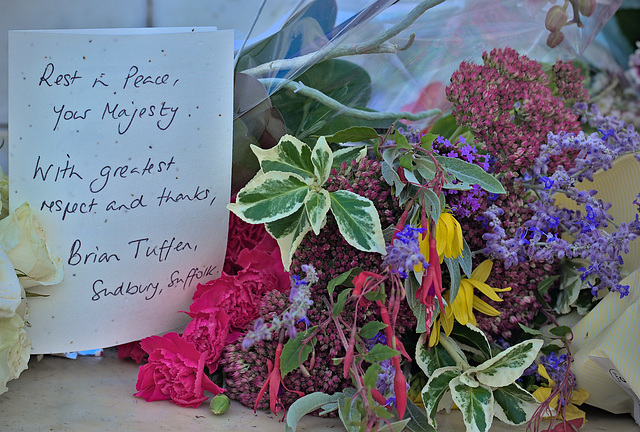 Rest in Peace,
Your Majesty.
With greatest
respect and thanks,
Brian Tuffen,
Sudbury, Suffolk.